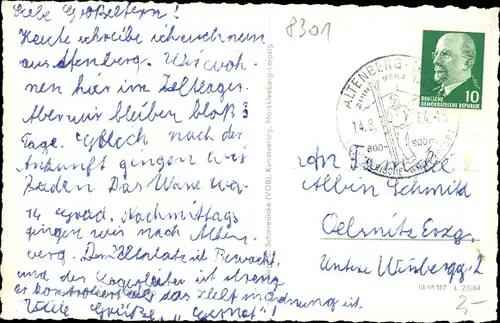 Liebe Großeltern!
Heute schreibe ich euch nun
aus Altenberg. Wir woh-
nen hier im Zeltlager.
Aber wir bleiben bloß 3
Tage. Gleich nach der
Ankunft gingen wir
Baden Das Ware war
14 Grad. Nachmittags
gingen wir nach Alten-
berg. Der Zeltplatz ist Bewacht
und der Lagerleiter ist streng
er kontrolliert ob das Zelt in Ordnung ist.
Viele Grüße, "Gernot"!
8301
ALTENBERG
14.8.
800-
900 m
DEUTSCHE
DEMOKRATISCHE REPUBLIK
10
An Familie
Albin Schmidt
Oelsnitz Erzg.
Untere Winbergg. 2
(VOB), Kunstverlag, Markkleeberg-Leipzig
III-18-117 A 23/64
2,-